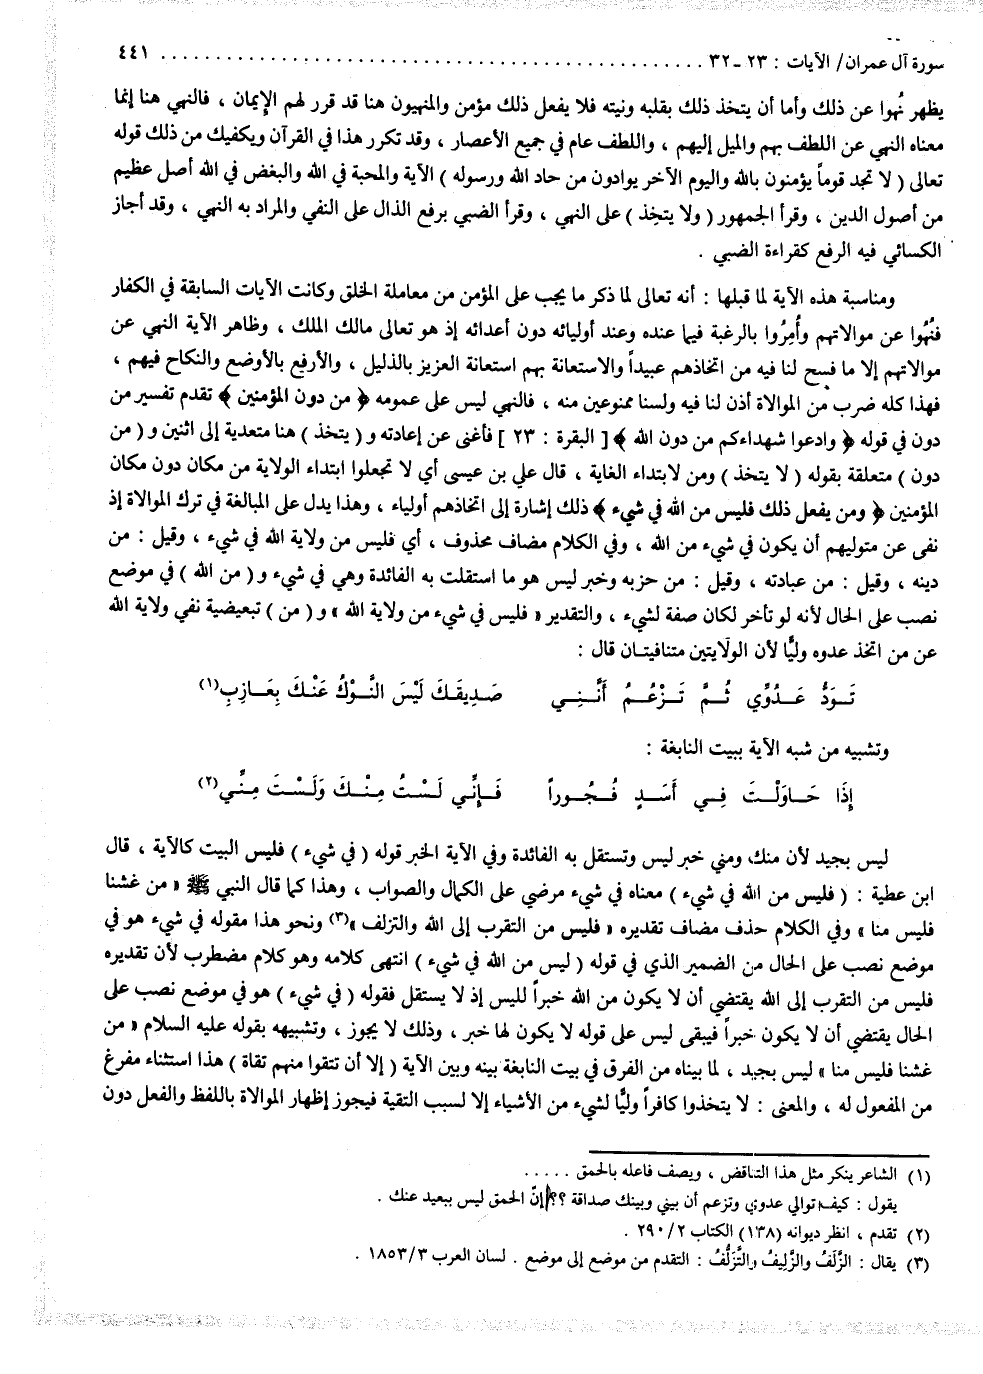 سورة آل عمران/ الآيات : ٢٣ -٣٢ . . . . . . . . . . . . . . . . . . . . . . . . . . . . . . . . . . . . . . . . . . . . . . . . ٤٤١
يظهر نُهوا عن ذلك وأما أن يتخذ ذلك بقلبه ونيته فلا يفعل ذلك مؤمن والمنهيون هنا قد قرر لهم الإيمان ، فالنهي هنا إنما
معناه النهي عن اللطف بهم والميل إليهم ، واللطف عام في جميع الأعصار ، وقد تكرر هذا في القرآن ويكفيك من ذلك قوله
تعالى ( لا تجد قوماً يؤمنون بالله واليوم الآخر يوادون من حاد الله ورسوله ) الآية والمحبة في الله والبغض في الله أصل عظيم
من أصول الدين ، وقرأ الجمهور ( ولا يتخِذ ) على النهي ، وقرأ الضبي برفع الذال على النفي والمراد به النهي ، وقد أجاز
الكسائي فيه الرفع كقراءة الضبي .
ومناسبة هذه الآية لما قبلها : أنه تعالى لما ذكر ما يجب على المؤمن من معاملة الخلق وكانت الآيات السابقة في الكفار
فنُهُوا عن موالاتهم وأُمِرُوا بالرغبة فيما عنده وعند أوليائه دون أعدائه إذ هو تعالى مالك الملك ، وظاهر الآية النهي عن
موالاتهم إلا ما فسح لنا فيه من اتخاذهم عبيداً والاستعانة بهم استعانة العزيز بالذليل ، والأرفع بالأوضع والنكاح فيهم ،
فهذا كله ضرب من الموالاة أذن لنا فيه ولسنا ممنوعين منه ، فالنهي ليس على عمومه ﴿ من دون المؤمنين ﴾ تقدم تفسير من
دون في قوله ﴿ وادعوا شهداءكم من دون الله ﴾ [ البقرة : ٢٣ ] فأغنى عن إعادته و ( يتخذ ) هنا متعدية إلى اثنين و ( من
دون ) متعلقة بقوله ( لا يتخذ ) ومن لابتداء الغاية ، قال علي بن عيسى أي لا تجعلوا ابتداء الولاية من مكان دون مكان
المؤمنين ﴿ ومن يفعل ذلك فليس من الله في شيء ﴾ ذلك إشارة إلى اتخاذهم أولياء ، وهذا يدل على المبالغة في ترك الموالاة إذ
نفى عن متوليهم أن يكون في شيء من الله ، وفي الكلام مضاف محذوف ، أي فليس من ولاية الله في شيء ، وقيل : من
دينه ، وقيل : من عبادته ، وقيل : من حزبه وخبر ليس هو ما استقلت به الفائدة وهي في شيء و ( من الله ) في موضع
نصب على الحال لأنه لو تأخر لكان صفة لشيء ، والتقدير « فليس في شيء من ولاية الله » و ( من ) تبعيضية نفي ولاية الله
عن من اتخذ عدوه وليًّا لأن الولايتين متنافيتان قال :
تَودُّ عَدُوِّي ثُمَّ تَزْعُمُ أَنَّنِي صَدِيقَكَ لَيْسَ النَّوْكُ عَنْكَ بِعَازِبِ(١)
وتشبيه من شبه الآية ببيت النابغة :
إِذَا حَاوَلْتَ فِي أَسَدٍ فُجُوراً فَإِنِّي لَسْتُ مِنْكَ وَلَسْتَ مِنِّي(٢)
ليس بجيد لأن منك ومني خبر ليس وتستقل به الفائدة وفي الآية الخبر قوله ( في شيء ) فليس البيت كالآية ، قال
ابن عطية : ( فليس من الله في شيء ) معناه في شيء مرضي على الكمال والصواب ، وهذا كما قال النبي ﷺ « من غشنا
فليس منا » وفي الكلام حذف مضاف تقديره « فليس من التقرب إلى الله والتزلف »(٣) ونحو هذا مقوله في شيء هو في
موضع نصب على الحال من الضمير الذي في قوله ( ليس من الله في شيء ) انتهى كلامه وهو كلام مضطرب لأن تقديره
فليس من التقرب إلى الله يقتضي أن لا يكون من الله خبراً لليس إذ لا يستقل فقوله ( في شيء ) هو في موضع نصب على
الحال يقتضي أن لا يكون خبراً فيبقى ليس على قوله لا يكون لها خبر ، وذلك لا يجوز ، وتشبيهه بقوله عليه السلام « من
غشنا فليس منا » ليس بجيد ، لما بيناه من الفرق في بيت النابغة بينه وبين الآية ( إلا أن تتقوا منهم تقاة ) هذا استثناء مفرغ
من المفعول له ، والمعنى : لا يتخذوا كافراً وليًّا لشيء من الأشياء إلا لسبب التقية فيجوز إظهار الموالاة باللفظ والفعل دون
(١) الشاعر ينكر مثل هذا التناقض ، ويصف فاعله بالحمق . . . . .
يقول : كيف توالي عدوي وتزعم أن بيني وبينك صداقة ؟؟ إنّ الحمق ليس ببعيد عنك .
(٢) تقدم ، انظر ديوانه (١٣٨) الكتاب ٢/ ٢٩٠ .
(٣) يقال : الزَّلَفُ والزَّلِيفُ والتَّزَلُّفُ : التقدم من موضع إلى موضع . لسان العرب ٣/ ١٨٥٣ .